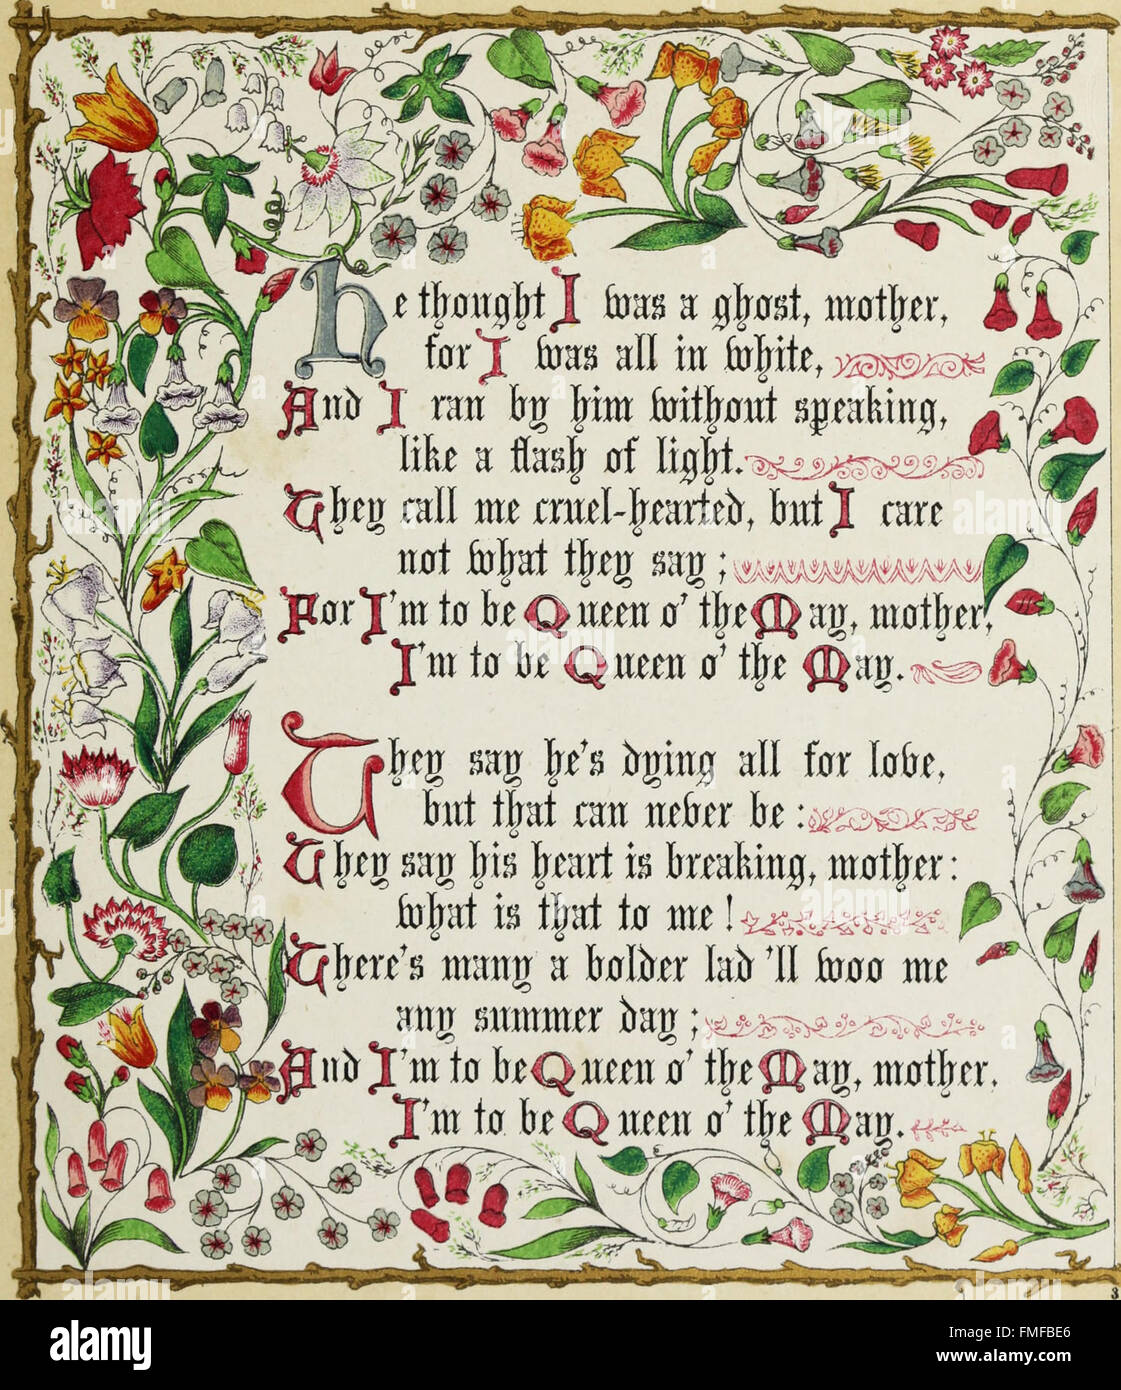 He thought I was a ghost, mother,
for I was all in white,
And I ran by him without speaking,
like a flash of light.
They call me cruel-hearted, but I care
not what they say;
For I'm to be Queen o' the May, mother,
I'm to be Queen o' the May.
They say he's dying all for love,
but that can never be:
They say his heart is breaking, mother:
what is that to me!
There's many a bolder lad 'll woo me
any summer day;
And I'm to be Queen o' the May, mother,
I'm to be Queen o' the May.
3
alamy
Image ID: FMFBE6
www.alamy.com